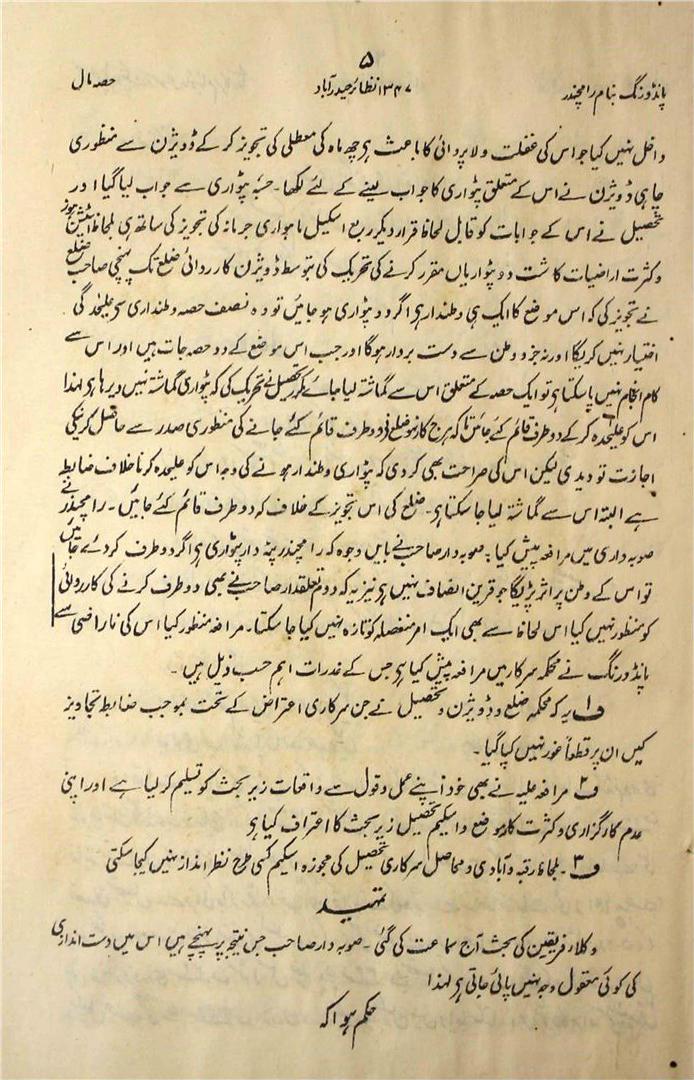 ۵
پانڈورنگ بنام رامچندر ۱۳۴۷ نظائر حیدرآباد حصہ مال
داخل نہیں کیا جو اس کی غفلت و لاپروائی کا باعث ہر چھ ماہ کی معطلی کی تجویز کر کے ڈویژن سے منظوری
چاہی ڈویژن نے اس کے متعلق پٹواری کا جواب لینے کے لئے لکھا۔ حسبہ پٹواری سے جواب لیا گیا اور
تحصیل نے اس کے جوابات کو قابل لحاظ قرار دیکر ربع اسکیل ماہواری جرمانہ کی تجویز کی ساتھ ہی بلحاظ
وکثرت اراضیات کاشت دو پٹواریاں مقرر کرنے کی تحریک کی بتوسط ڈویژن کارروائی ضلع تک پہنچی صاحب ضلع
نے تجویز کی کہ اس موضع کا ایک ہی وطندار ہے اگر دو پٹواری ہو جائیں تو وہ نصف حصہ وطنداری سے علیحدگی
اختیار نہیں کریگا اور نہ جزو وطن سے دست بردار ہوگا اور جب اس موضع کے دو حصہ جات ہیں اور اس سے
کام انجام نہیں پا سکتا ہے تو ایک حصہ کے متعلق اس سے گماشتہ لیا جائے مکرر تحصیل نے تحریک کی کہ پٹواری گماشتہ نہیں دیرہا ہے لہذا
اس کو علیحدہ کر کے دو طرف قائم کئے جائیں تاکہ ہرج کار نہو ضلع نے دو طرف قائم کئے جانے کی منظوری صدر سے حاصل کرنیکی
اجازت تو دیدی لیکن اس کی صراحت بھی کر دی کہ پٹواری وطندار ہونے کی وجہ اس کو علیحدہ کرنا خلاف ضابطہ
ہے البتہ اس سے گماشتہ لیا جا سکتا ہے۔ ضلع کی اس تجویز کے خلاف کہ دو طرف قائم کئے جائیں۔ رامچندر نے
صوبہ داری میں مرافعہ پیش کیا۔ صوبہ دار صاحب نے بایں وجوہ کہ رامچندر پٹہ دار پٹواری ہے اگر دو طرف کردئے جائیں
تو اس کے وطن پر اثر پڑیگا جو قرین انصاف نہیں ہے نیز یہ کہ دوم تعلقدار صاحب نے بھی دو طرف کرنے کی کارروائی
کو منظور نہیں کیا اس لحاظ سے بھی ایک امر منفصلہ کو تازہ نہیں کیا جا سکتا۔ مرافعہ منظور کیا اس کی ناراضی سے
پانڈورنگ نے محکمہ سرکار میں مرافعہ پیش کیا ہے جس کے عذرات اہم حسب ذیل ہیں۔
ف۱ یہ کہ محکمہ ضلع و ڈویژن و تحصیل نے جن سرکاری اعتراض کے تحت بموجب ضابطہ تجاویز
کیں ان پر قطعاً غور نہیں کیا گیا۔
ف۲ مرافعہ علیہ نے بھی خود اپنے عمل و قول سے واقعات زیر بحث کو تسلیم کر لیا ہے اور اپنی
عدم کارگزاری و کثرت کار موضع و اسکیم تحصیل زیر بحث کا اعتراف کیا ہے
ف۳۔ بلحاظ رقبہ و آبادی و محاصل سرکاری تحصیل کی مجوزہ اسکیم کسی طرح نظر انداز نہیں کیجا سکتی
تمہید
وکلاء فریقین کی بحث آج سماعت کی گئی۔ صوبہ دار صاحب جس نتیجہ پر پہنچے ہیں اس میں دست اندازی
کی کوئی معقول وجہ نہیں پائی جاتی ہے لہذا
حکم ہوا کہ